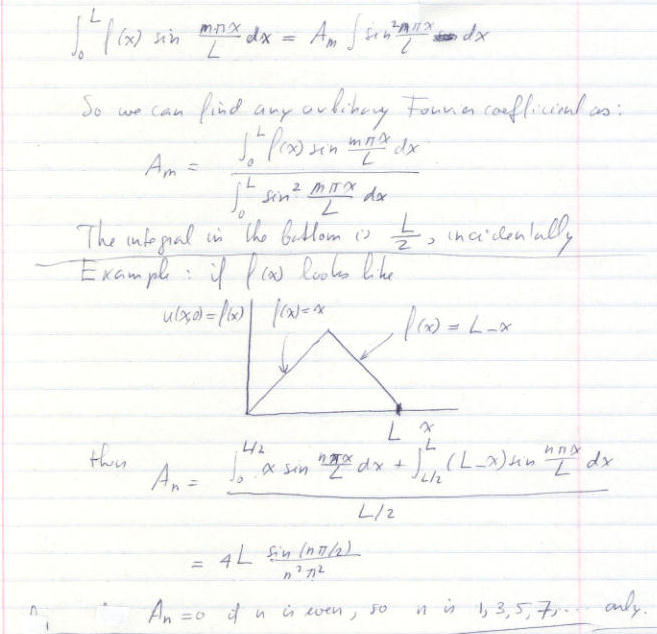 ∫₀ᴸ f(x) sin mπx/L dx = Aₘ ∫ sin² mπx/L dx
So we can find any arbitrary Fourier coefficient as:
Aₘ = ∫₀ᴸ f(x) sin mπx/L dx / ∫₀ᴸ sin² mπx/L dx
The integral in the bottom is L/2, incidentally
Example: if f(x) looks like
u(x,0)=f(x) f(x)=x
f(x) = L-x
L x
then Aₙ = ( ∫₀^(L/2) x sin nπx/L dx + ∫_(L/2)^L (L-x) sin nπx/L dx ) / (L/2)
= 4L sin(nπ/2) / n²π²
Aₙ=0 if n is even, so n is 1,3,5,7,... only.